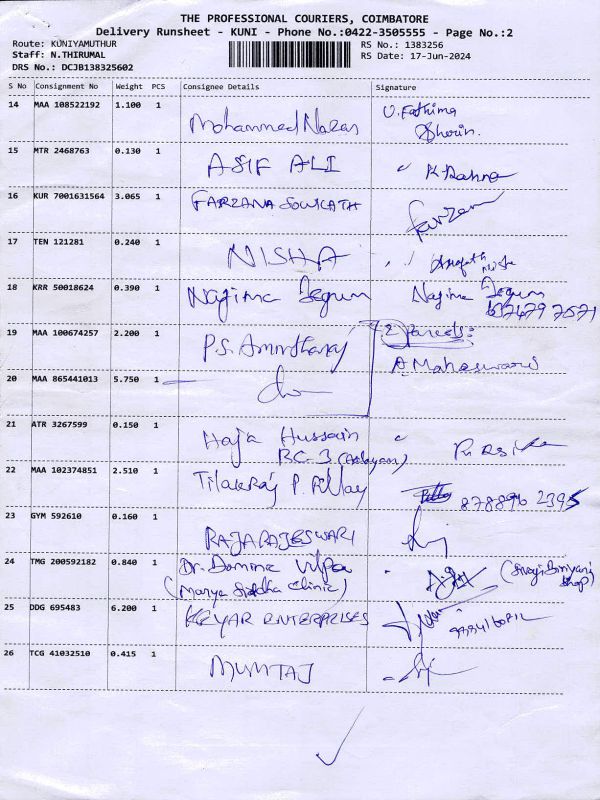 THE PROFESSIONAL COURIERS, COIMBATORE
Delivery Runsheet - KUNI - Phone No.:0422-3505555 - Page No.:2
Route: KUNIYAMUTHUR
RS No.: 1383256
Staff: N.THIRUMAL
RS Date: 17-Jun-2024
DRS No.: DCJB138325602
S No Consignment No Weight PCS Consignee Details Signature
14 MAA 108522192 1.100 1 Mohammed U.Fathima
15 MTR 2468763 0.130 1 ASIF ALI
16 KUR 7001631564 3.065 1 FARZANA SOWKATH
17 TEN 121281 0.240 1 NISHA
18 KRR 50018624 0.390 1 Najima Begum Najima Begum
19 MAA 100674257 2.200 1 P.S. 2 parcels:
A. Maheswari
20 MAA 865441013 5.750 1
21 ATR 3267599 0.150 1 Haja Hussain
22 MAA 102374851 2.510 1 Tilakraj P. Pillay
878896 2395
23 GYM 592610 0.160 1 RAJARAJESWARI
24 TMG 200592182 0.840 1 Dr. Dominic
(Marya Siddha Clinic)
25 DDG 695483 6.200 1 KEYAR ENTERPRISES
26 TCG 41032510 0.415 1 MUMTAJ